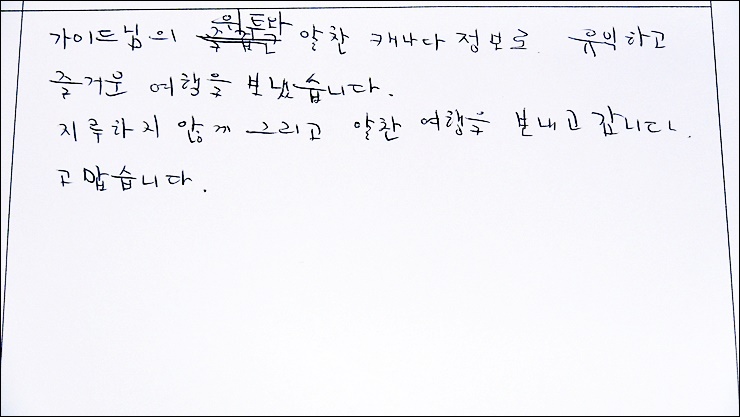 가이드님의 알찬 캐나다 정보로 유익하고
즐거운 여행을 보냈습니다.
지루하지 않게 그리고 알찬 여행을 보내고 갑니다.
고맙습니다.